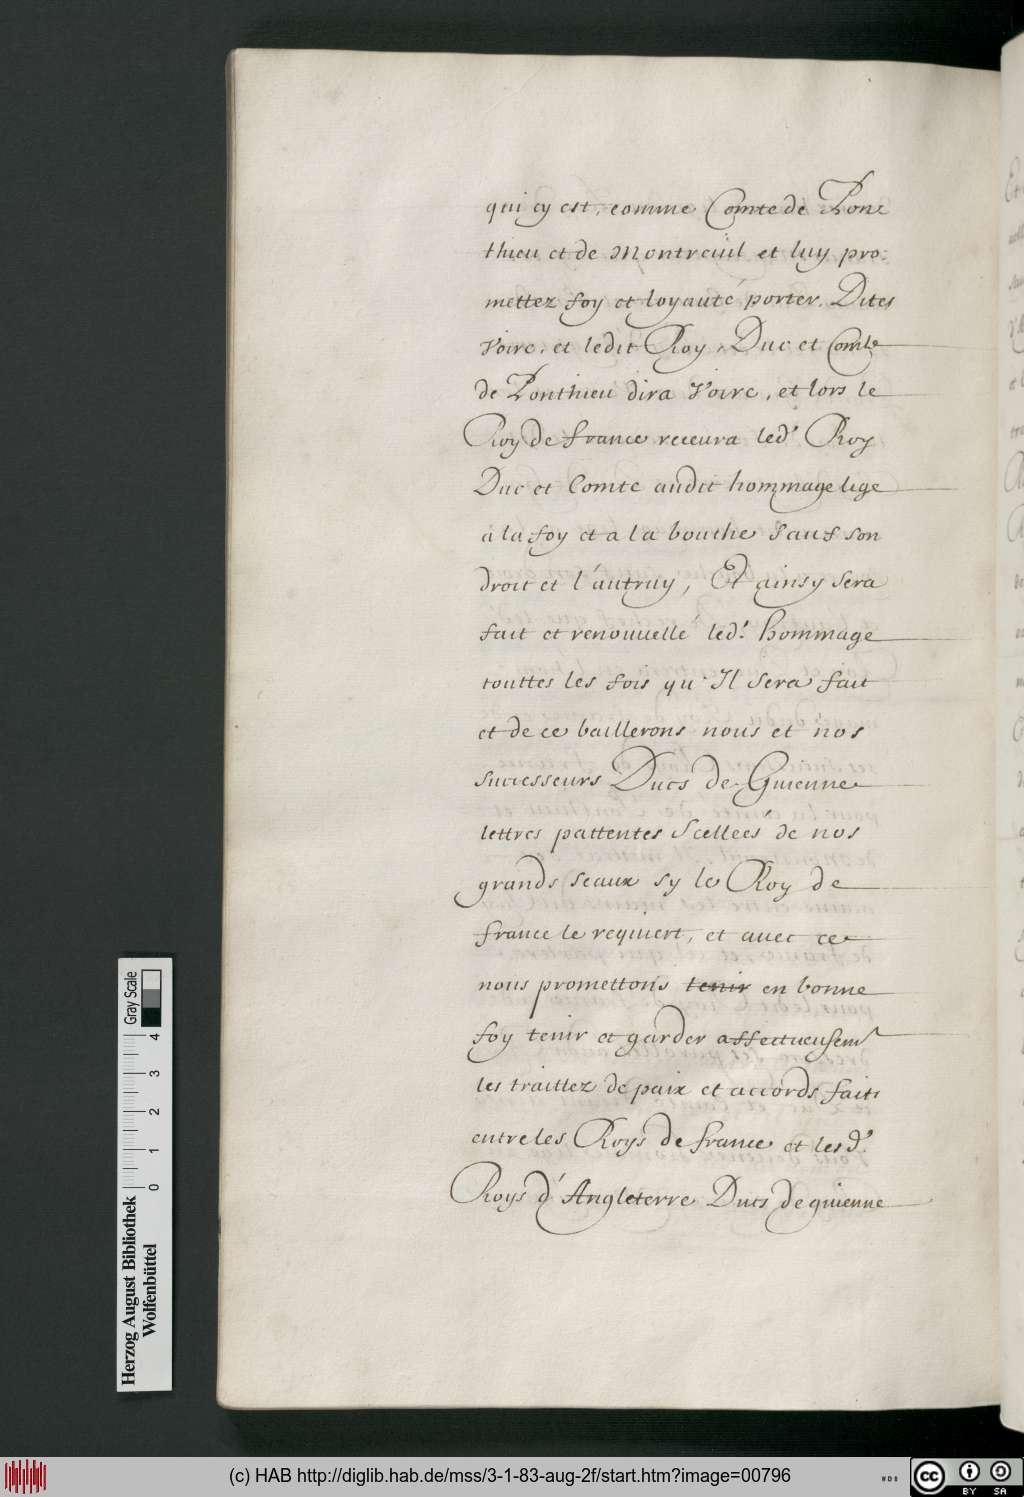 qui cy est, comme Comte de Pon-
thieu et de Montreuil et luy pro-
mettez foy et loyauté porter. Dites
voire, et ledit Roy, Duc et Comte
de Ponthieu dira voire, et lors le
Roy de france receura led.t Roy
Duc et Comte audit hommage lige
a la foy et a la bouche sauf son
droit et l'autruy, Et ainsy sera
fait et renouuellé led.t hommage
touttes les fois qu'Il sera fait
et de ce baillerons nous et nos
successeurs Ducs de Guienne
lettres pattentes Scelleés de nos
grands seaux sy le Roy de
france le requiert, et auec ce
nous promettons tenir en bonne
foy tenir et garder affectueusem.t
les traittez de paix et accords faits
entre les Roys de france et les d.t
Roys d'Angleterre Ducs de guienne
Gray Scale
0 1 2 3 4
Herzog August Bibliothek
Wolfenbüttel
(c) HAB http://diglib.hab.de/mss/3-1-83-aug-2f/start.htm?image=00796
WDB
cc
BY SA